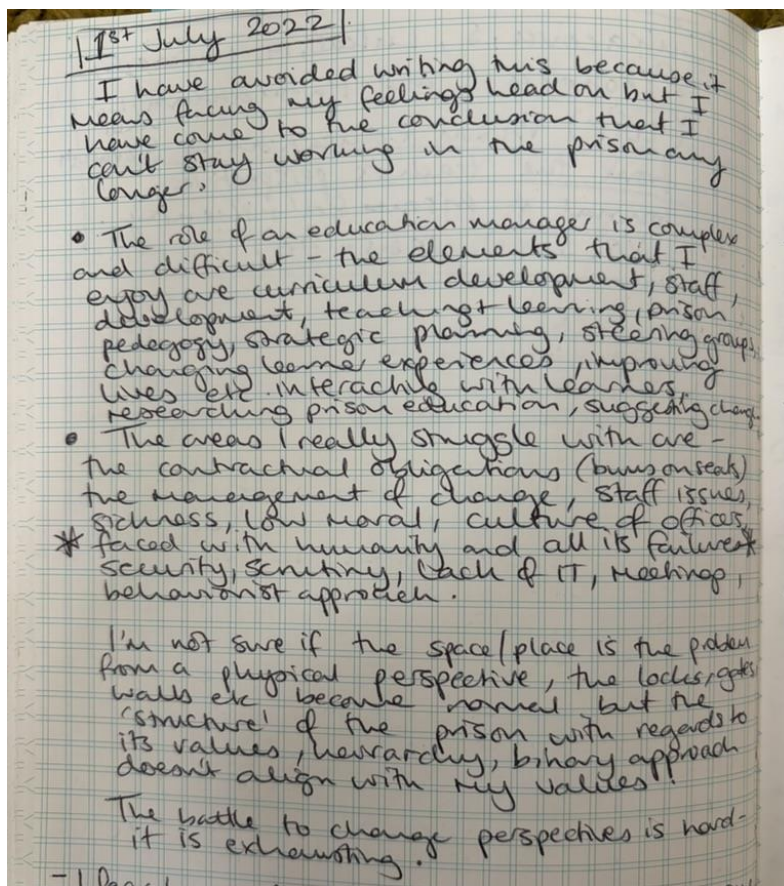 1st July 2022
I have avoided writing this because it
means facing my feelings head on but I
have come to the conclusion that I
can't stay working in the prison any
longer.
• The role of an education manager is complex
and difficult - the elements that I
enjoy are curriculum development, staff,
development, teaching + learning, prison
pedegogy, strategic planning, steering groups,
changing learner experiences, improving
lives etc. interactive with learners,
researching prison education, suggesting change.
• The areas I really struggle with are -
the contractual obligations (bums on seats)
the management of change, staff issues,
sickness, low moral, culture of offices,
* faced with humanity and all its failures *
security, scrutiny, lack of IT, meetings,
behaviourist approach.
I'm not sure if the space/place is the problem
from a physical perspective, the locks, gates
walls etc become normal but the
'structure' of the prison with regards to
its values, heirarchy, binary approach
doesn't align with my values!
The battle to change perspectives is hard -
it is exhausting.